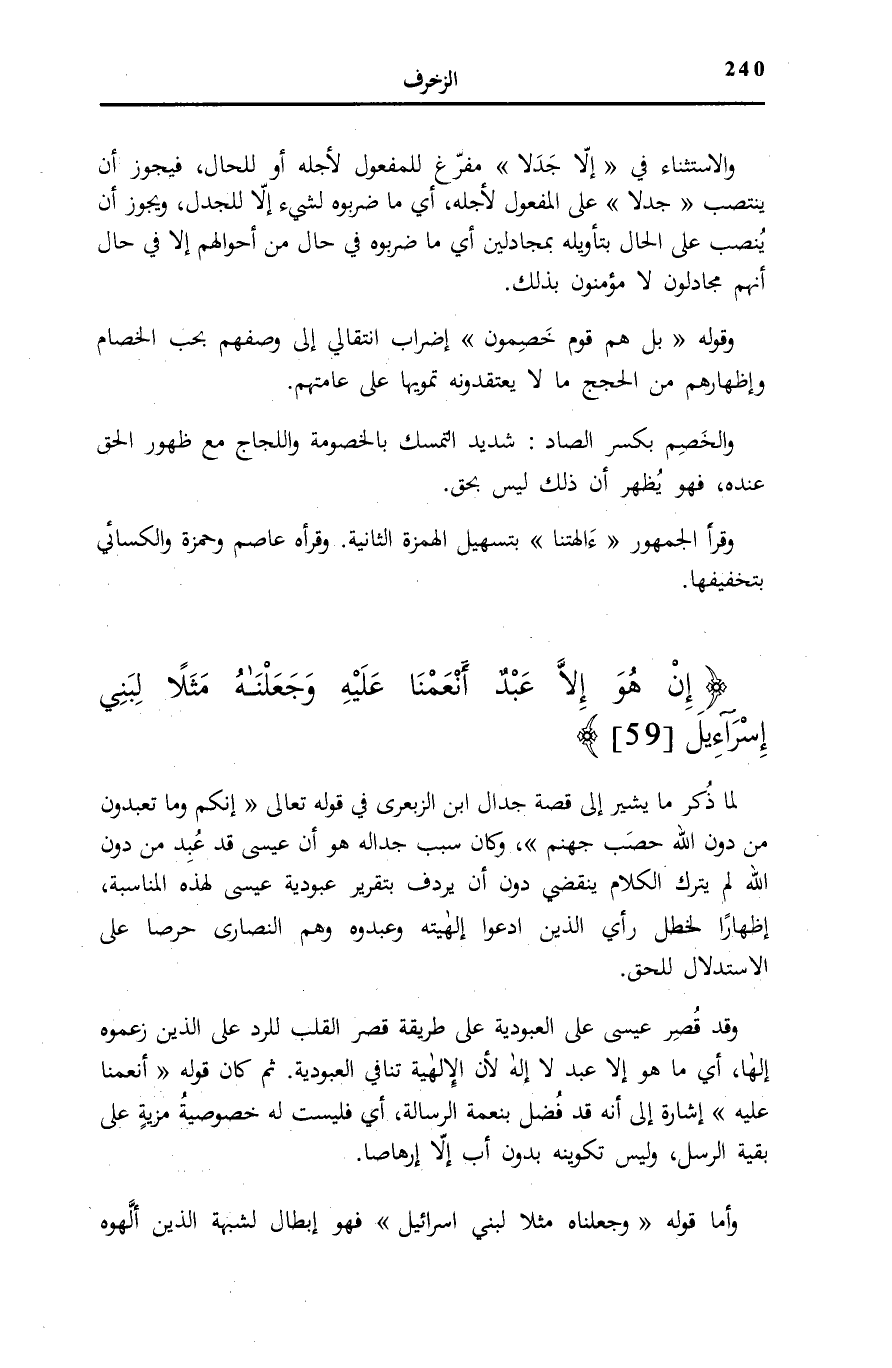 240
الزخرف
والاستثناء في « إلّا جَدَلا » مفرّغ للمفعول لأجله أو للحال، فيجوز أن
ينتصب « جدلا » على المفعول لأجله، أي ما ضربوه لشيء إلّا للجدل، ويجوز أن
يُنصب على الحال بتأويله بمجادلين أي ما ضربوه في حال من أحوالهم إلا في حال
أنهم مجادلون لا مؤمنون بذلك.
وقوله « بل هم قوم خَصِمون » إضراب انتقالي إلى وصفهم بحب الخصام
وإظهارهم من الحجج ما لا يعتقدونه تمويها على عامتهم.
والخَصِم بكسر الصاد : شديد التمسك بالخصومة واللجاج مع ظهور الحق
عنده، فهو يُظهر أن ذلك ليس بحق.
وقرأ الجمهور « ءَالهتنا » بتسهيل الهمزة الثانية. وقرأه عاصم وحمزة والكسائي
بتخفيفها.
﴿ إِنْ هُوَ إِلاَّ عَبْدٌ أَنْعَمْنَا عَلَيْهِ وَجَعَلْنَـٰهُ مَثَلًا لِبَنِي
إِسْرَآءِيلَ [59] ﴾
لما ذُكر ما يشير إلى قصة جدال ابن الزبعرى في قوله تعالى « إنكم وما تعبدون
من دون الله حصَب جهنم »، وكان سبب جداله هو أن عيسى قد عُبِد من دون
الله لم يترك الكلام ينقضي دون أن يردف بتقرير عبودية عيسى لهذه المناسبة،
إظهارًا لخطل رأي الذين ادعوا إلٰهيته وعبدوه وهم النصارى حرصا على
الاستدلال للحق.
وقد قُصِر عيسى على العبودية على طريقة قصر القلب للرد على الذين زعموه
إلٰها، أي ما هو إلا عبد لا إلٰه لأن الإلٰهية تنافي العبودية. ثم كان قوله « أنعمنا
عليه » إشارة إلى أنه قد فُضل بنعمة الرسالة، أي فليست له خصوصيةُ مزيةٍ على
بقية الرسل، وليس تكوينه بدون أب إلّا إرهاصا.
وأما قوله « وجعلناه مثلا لبني اسرائيل » فهو إبطال لشبهة الذين ألَّهوه